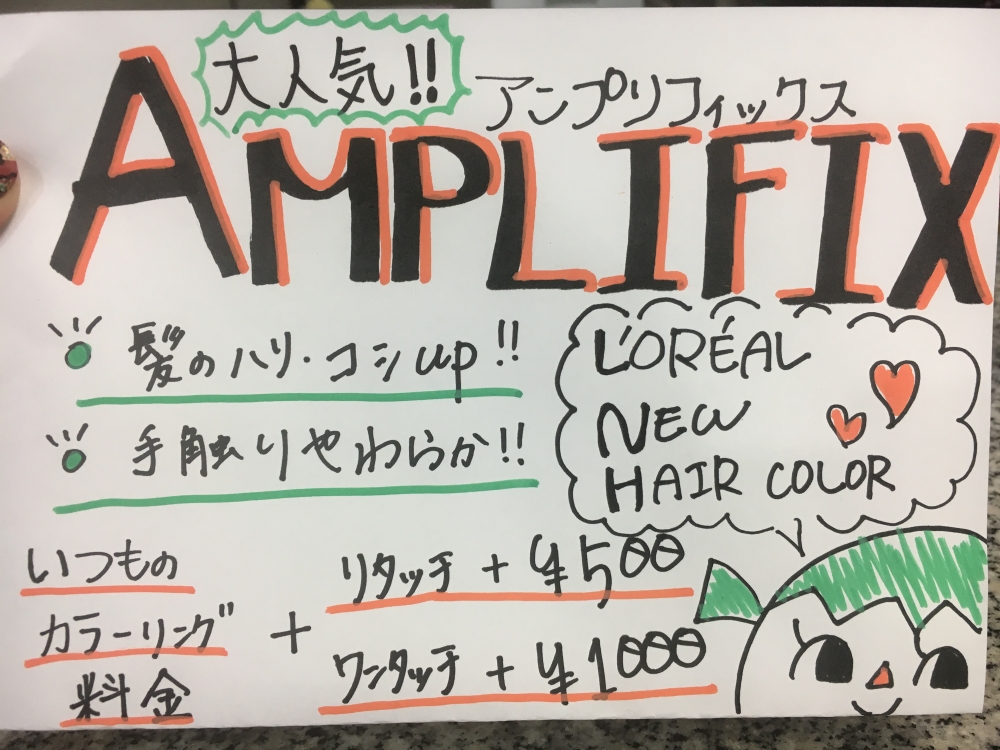 大人気!!
アンプリフィックス
AMPLIFIX
髪のハリ・コシup!!
手触りやわらか!!
L'ORÉAL
NEW
HAIR COLOR
いつもの
カラーリング
料金
+
リタッチ + ¥500
ワンタッチ + ¥1000